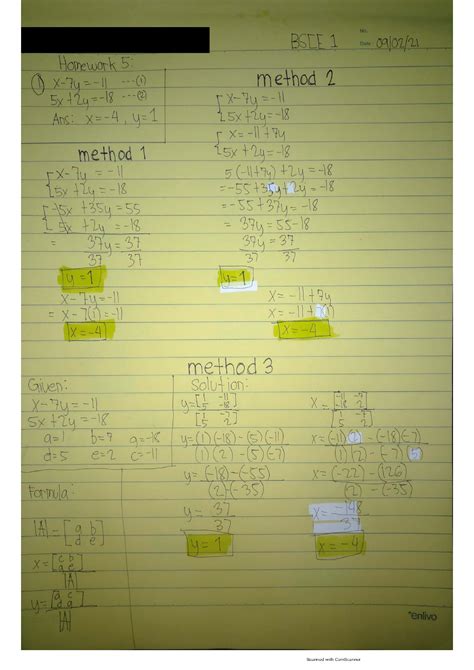 NO.
BSCE 1 Date 09/02/21
Homework 5:
① x-7y=-11 ---(1)
5x+2y=-18 ---(2)
Ans: x=-4, y=1
method 1
x-7y = -11
5x+2y = -18
-5x +35y = 55
5x + 2y = -18
= 37y = 37
37 37
y = 1
x-7y = -11
= x-7(1) = -11
x = -4
method 2
x-7y = -11
5x+2y = -18
x = -11+7y
5x + 2y = -18
5(-11+7y)+2y = -18
= -55+35y+2y = -18
= -55+37y = -18
= 37y = 55-18
37y = 37
37 37
y=1
x = -11+7y
x = -11+7(1)
x = -4
method 3
Given:
x-7y = -11
5x+2y = -18
a=1 b=7 a=-18
d=5 e=2 c=-11
Formula:
|A| = [a b
d e]
x = [c b
|A|
y = [a c
|A|
Solution:
y = [1 -11
5 -18]
[1 -7
5 2]
y = (1)(-18)-(5)(-11)
(1)(2)-(5)(-7)
y = (-18)-(-55)
(2)-(-35)
y = 37
37
y = 1
x = [-11 -7
-18 2]
[1 -7
5 2]
x = (-11)(2)-(-18)(-7)
(1)(2)-(-7)(5)
x = (-22)-(126)
(2)-(-35)
x = -148
37
x = -4
enlivo
Scanned with CamScanner